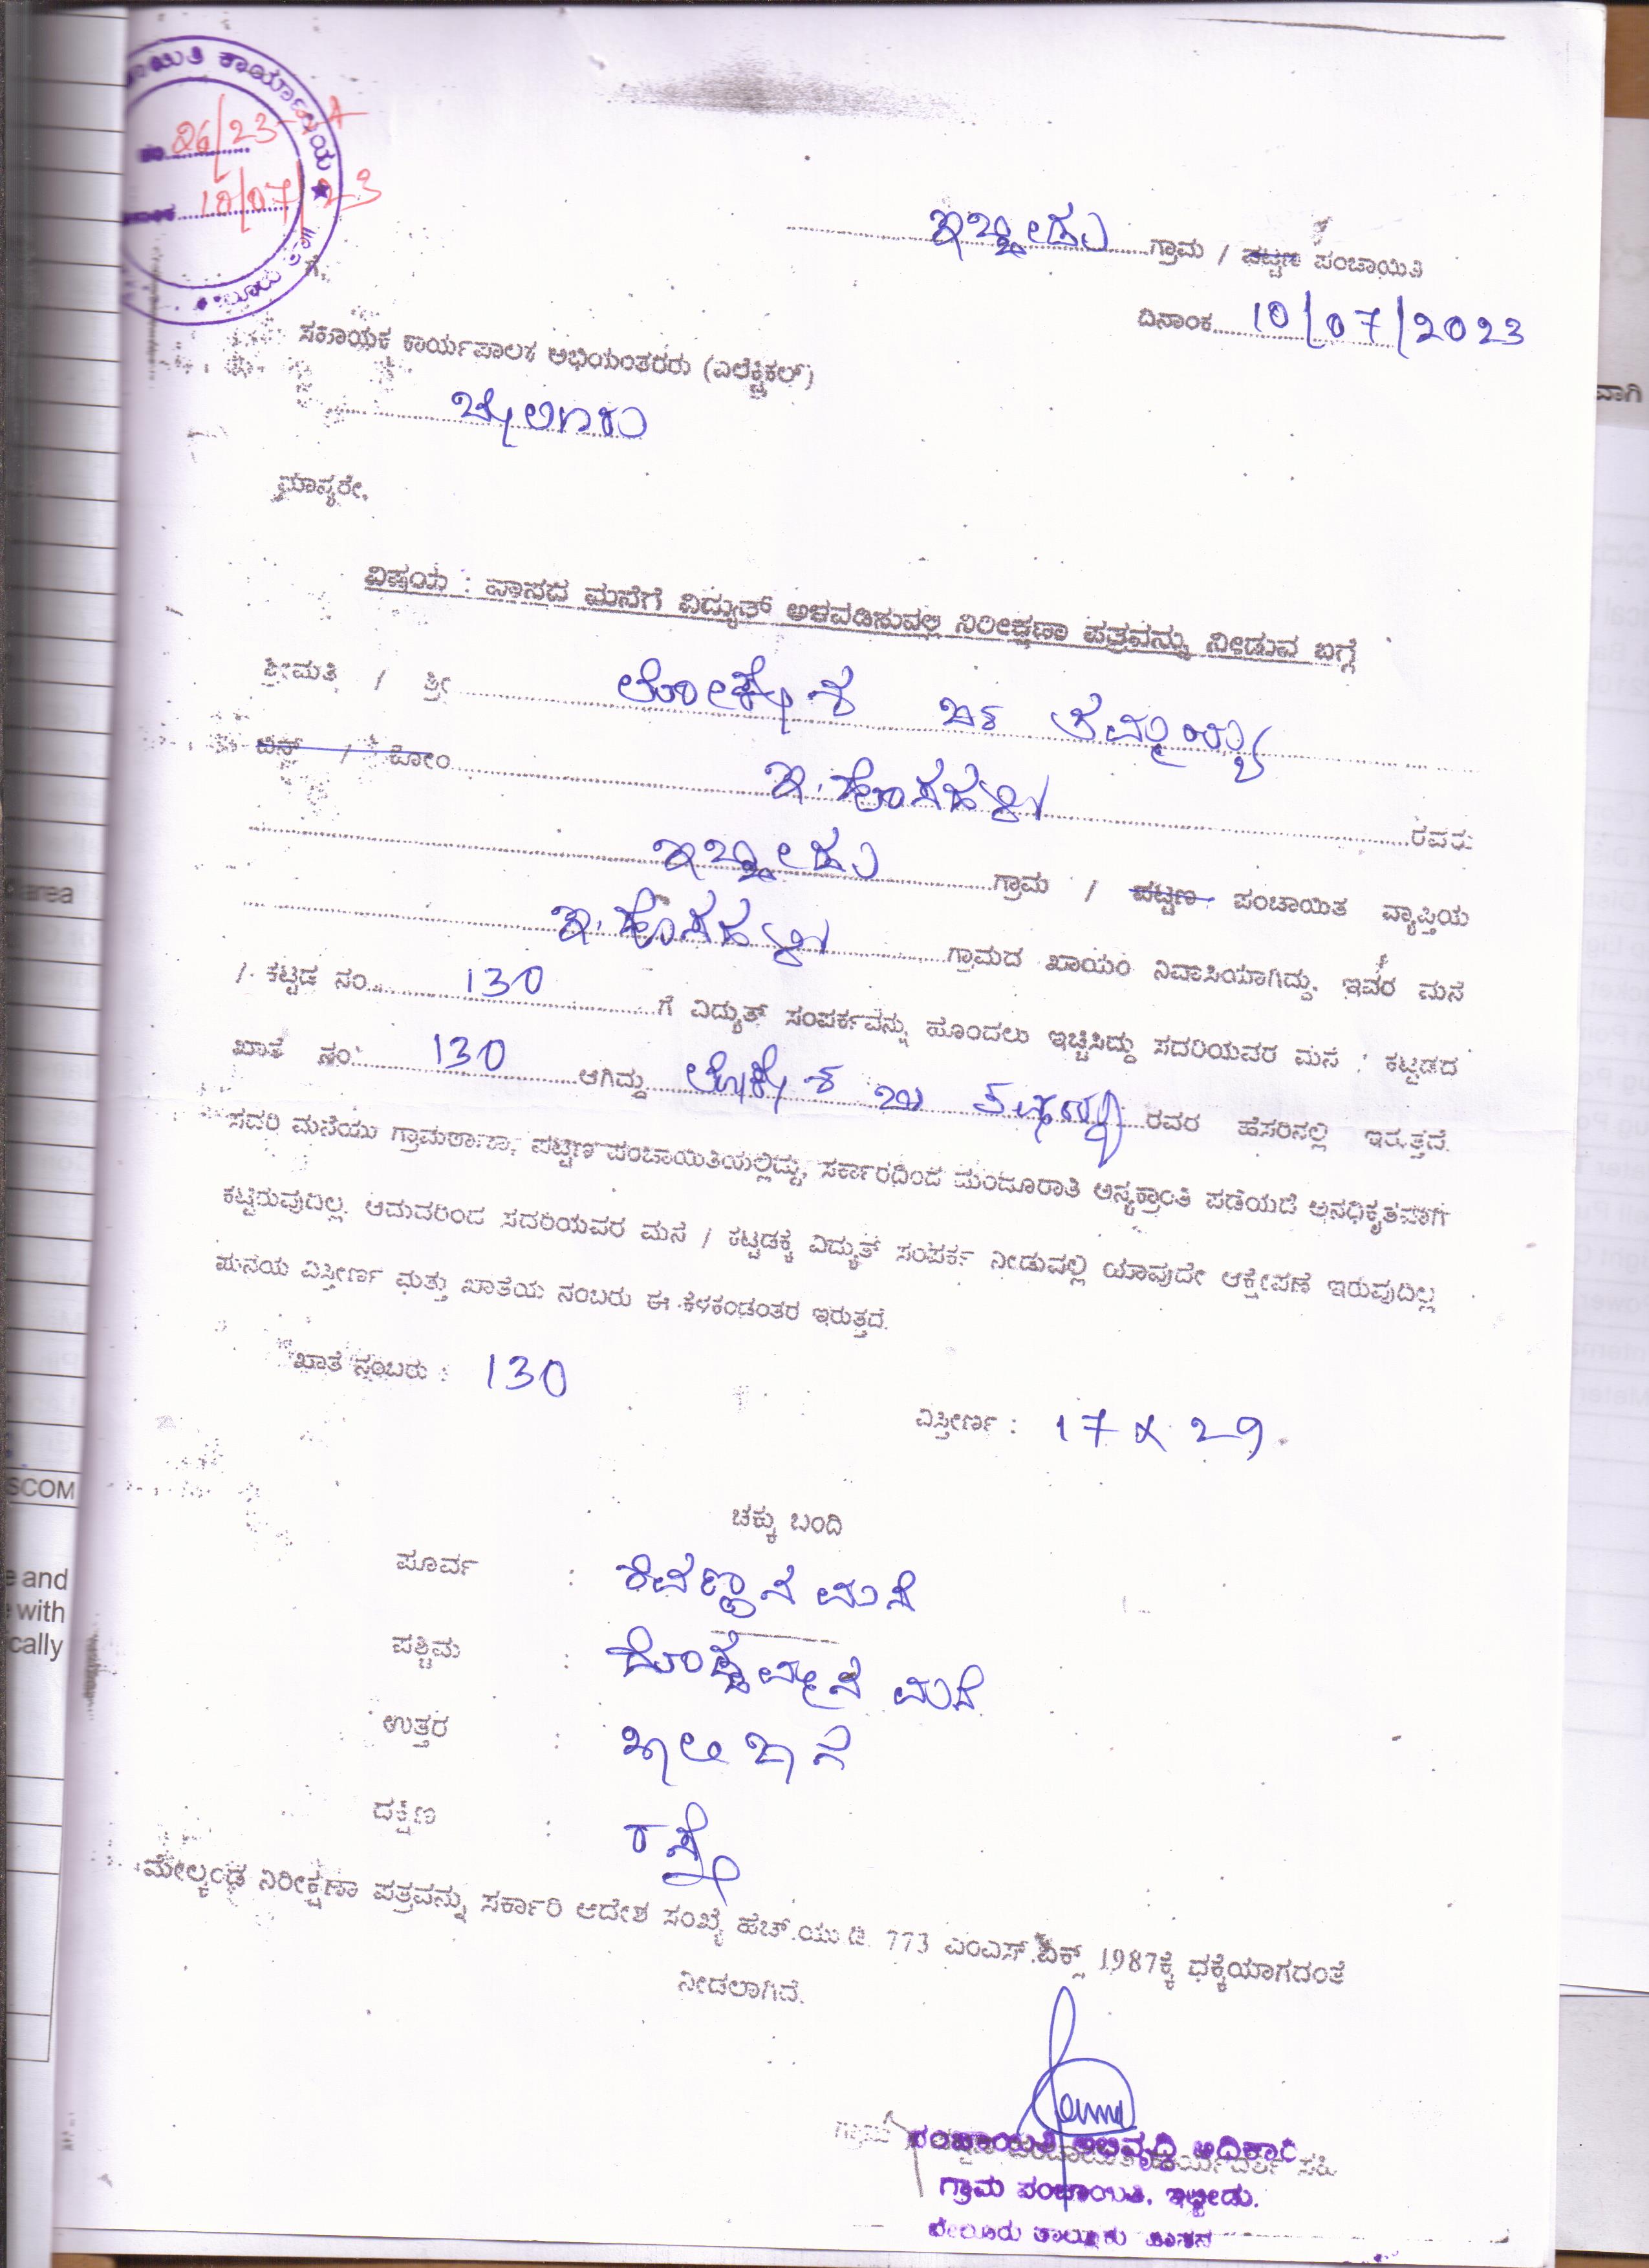 ಯಿತಿ ಕಾರ್ಯಾಲಯ
26/23-
10/07/23
ಇಬ್ಬೀಡು ಗ್ರಾಮ / ಪಟ್ಟಣ ಪಂಚಾಯಿತಿ
ದಿನಾಂಕ 10/07/2023
ಗೆ,
ಸಹಾಯಕ ಕಾರ್ಯಪಾಲಕ ಅಭಿಯಂತರರು (ಎಲೆಕ್ಟ್ರಿಕಲ್)
ಮಾನ್ಯರೇ,
ವಿಷಯ : ವಾಸದ ಮನೆಗೆ ವಿದ್ಯುತ್ ಅಳವಡಿಸುವಲ್ಲಿ ನಿರೀಕ್ಷಣಾ ಪತ್ರವನ್ನು ನೀಡುವ ಬಗ್ಗೆ
ಶ್ರೀಮತಿ / ಶ್ರೀ ಲೋಕೇಶ ಬಿನ್ ತಿಮ್ಮಯ್ಯ
ಬಿನ್ / ಕೋಂ ಇ.ಹೊಸಹಳ್ಳಿ ರವರು
ಇಬ್ಬೀಡು ಗ್ರಾಮ / ಪಟ್ಟಣ ಪಂಚಾಯಿತ ವ್ಯಾಪ್ತಿಯ
ಇ.ಹೊಸಹಳ್ಳಿ ಗ್ರಾಮದ ಖಾಯಂ ನಿವಾಸಿಯಾಗಿದ್ದು, ಇವರ ಮನೆ
/ ಕಟ್ಟಡ ನಂ. 130 ಗೆ ವಿದ್ಯುತ್ ಸಂಪರ್ಕವನ್ನು ಹೊಂದಲು ಇಚ್ಛಿಸಿದ್ದು ಸದರಿಯವರ ಮನೆ / ಕಟ್ಟಡದ
ಖಾತೆ ನಂ. 130 ಆಗಿದ್ದು ಲೋಕೇಶ ಬಿನ್ ತಿಮ್ಮಯ್ಯ ರವರ ಹೆಸರಿನಲ್ಲಿ ಇರುತ್ತದೆ.
ಸದರಿ ಮನೆಯು ಗ್ರಾಮಠಾಣಾ, ಪಟ್ಟಣ ಪಂಚಾಯಿತಿಯಲ್ಲಿದ್ದು, ಸರ್ಕಾರದಿಂದ ಮಂಜೂರಾತಿ ಅನ್ಯಕ್ರಾಂತಿ ಪಡೆಯದೆ ಅನಧಿಕೃತವಾಗಿ
ಕಟ್ಟಿರುವುದಿಲ್ಲ. ಆದುದರಿಂದ ಸದರಿಯವರ ಮನೆ / ಕಟ್ಟಡಕ್ಕೆ ವಿದ್ಯುತ್ ಸಂಪರ್ಕ ನೀಡುವಲ್ಲಿ ಯಾವುದೇ ಆಕ್ಷೇಪಣೆ ಇರುವುದಿಲ್ಲ
ಮನೆಯ ವಿಸ್ತೀರ್ಣ ಮತ್ತು ಖಾತೆಯ ನಂಬರು ಈ ಕೆಳಕಂಡಂತರ ಇರುತ್ತದೆ.
ಖಾತೆ ನಂಬರು : 130
ವಿಸ್ತೀರ್ಣ : 17 x 29.
ಚಕ್ಕು ಬಂದಿ
ಪೂರ್ವ : ಶಿವಣ್ಣನ ಮನೆ
ಪಶ್ಚಿಮ : ಮನೆ
ಉತ್ತರ : ಖಾಲಿ ಜಾಗ
ದಕ್ಷಿಣ : ರಸ್ತೆ
ಮೇಲ್ಕಂಡ ನಿರೀಕ್ಷಣಾ ಪತ್ರವನ್ನು ಸರ್ಕಾರಿ ಆದೇಶ ಸಂಖ್ಯೆ ಹೆಚ್.ಯು.ಡಿ. 773 ಎಂಎಸ್. 1987ಕ್ಕೆ ಧಕ್ಕೆಯಾಗದಂತೆ
ನೀಡಲಾಗಿದೆ.
ಪಂಚಾಯಿತಿ ಅಭಿವೃದ್ಧಿ ಅಧಿಕಾರಿ
ಗ್ರಾಮ ಪಂಚಾಯಿತಿ, ಇಬ್ಬೀಡು.
ಬೇಲೂರು ತಾಲ್ಲೂಕು ಹಾಸನ
area
SCOM
and
with
cally
ವಾಗಿ